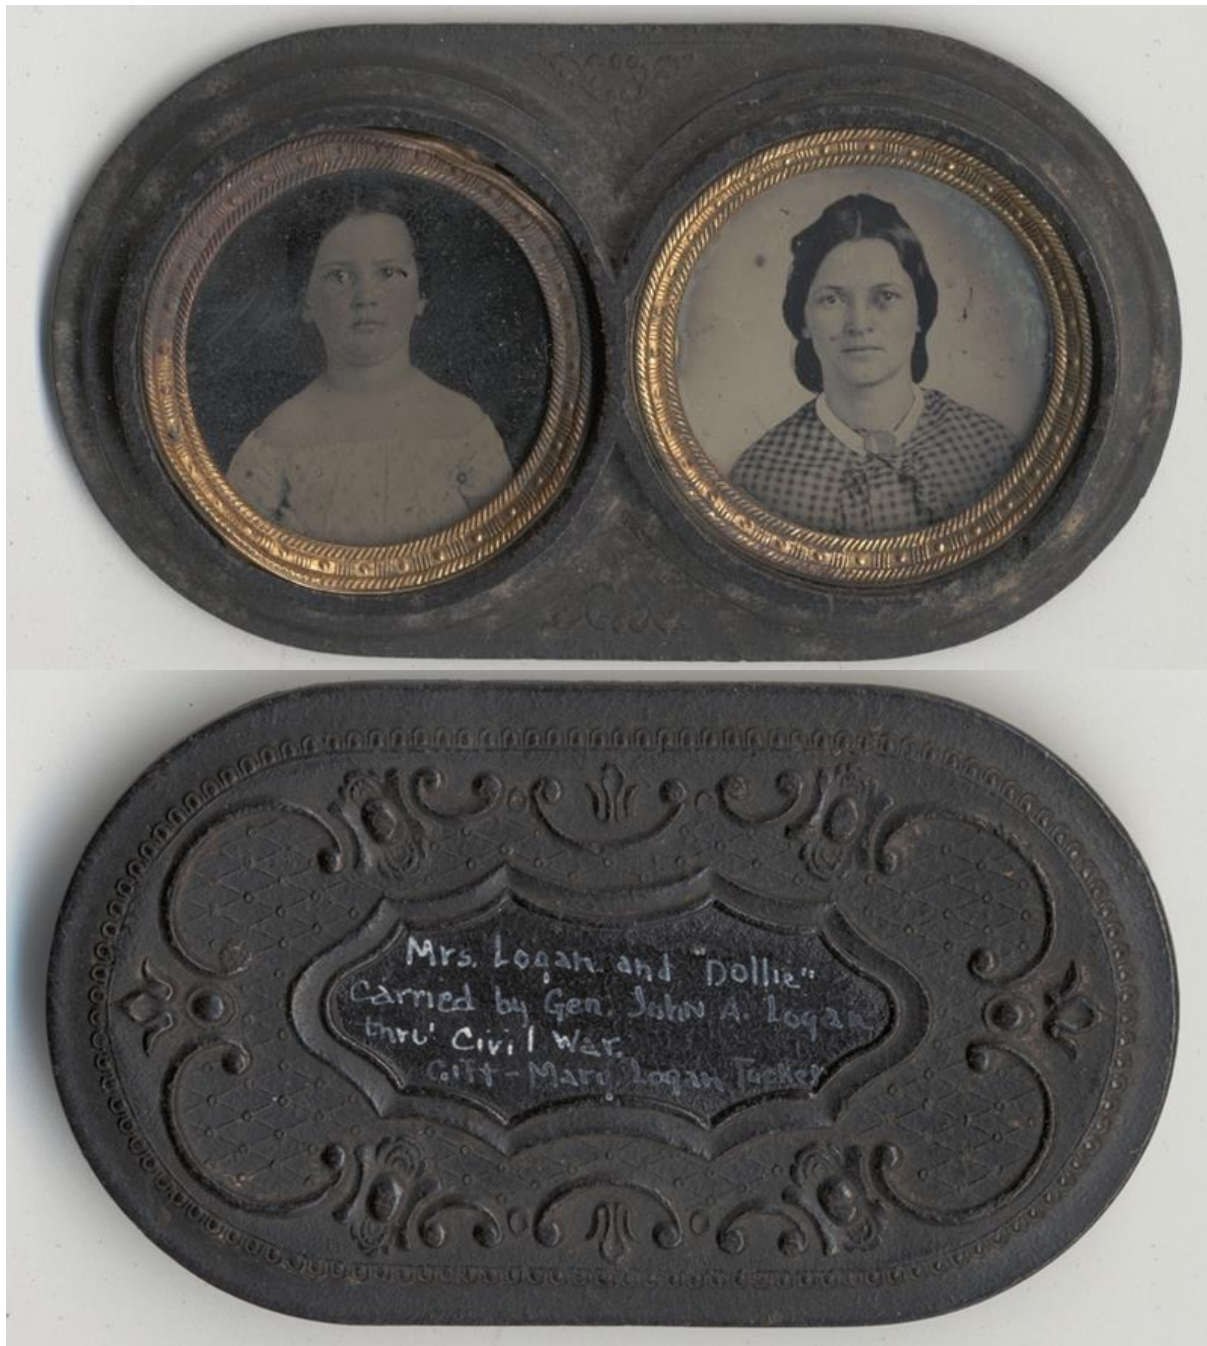 Mrs. Logan and "Dollie"
carried by Gen. John A. Logan
thru' Civil War.
Gift - Mary Logan Tucker